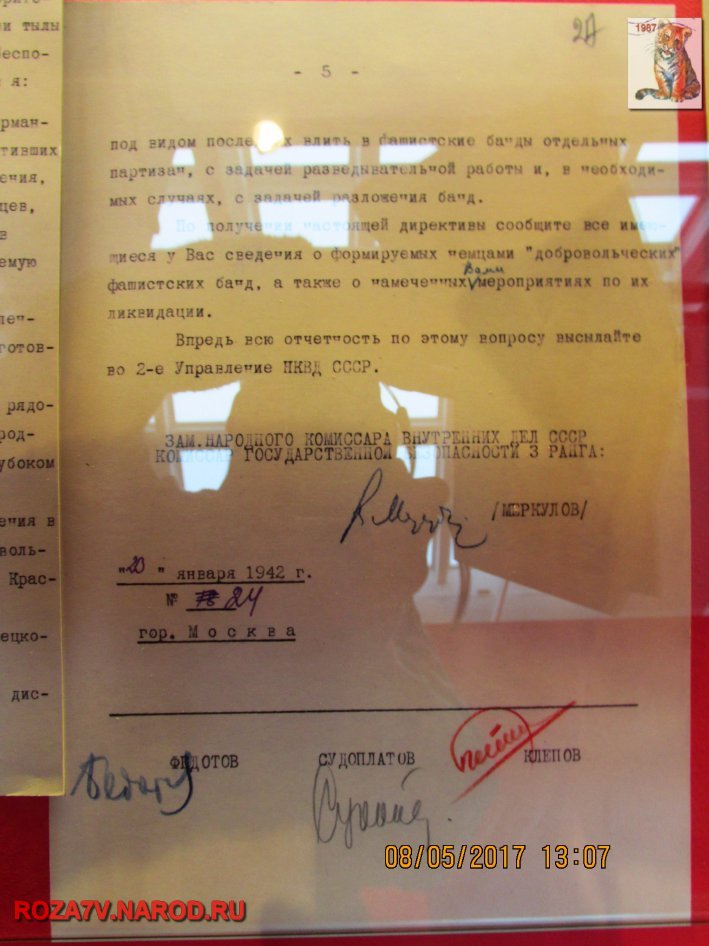 2А
1987
- 5 -
под видом последних влить в фашистские банды отдельных
партизан, с задачей разведывательной работы и, в необходи-
мых случаях, с задачей разложения банд.
По получении настоящей директивы сообщите все имею-
щиеся у Вас сведения о формируемых немцами "добровольческих"
Вами
фашистских банд, а также о намеченных мероприятиях по их
ликвидации.
Впредь всю отчетность по этому вопросу высылайте
во 2-е Управление НКВД СССР.
ЗАМ.НАРОДНОГО КОМИССАРА ВНУТРЕННИХ ДЕЛ СССР
КОМИССАР ГОСУДАРСТВЕННОЙ БЕЗОПАСНОСТИ 3 РАНГА:
/МЕРКУЛОВ/
"20" января 1942 г.
№ 24
гор. Москва
ФЕДОТОВ СУДОПЛАТОВ КЛЕПОВ
и тылы
беспо-
я:
рман-
тивших
ения,
цев,
в
емую
лен-
готов-
рядо-
род-
убоком
ения в
воль-
Крас-
ецко-
дис-
08/05/2017 13:07
ROZA7V.NAROD.RU